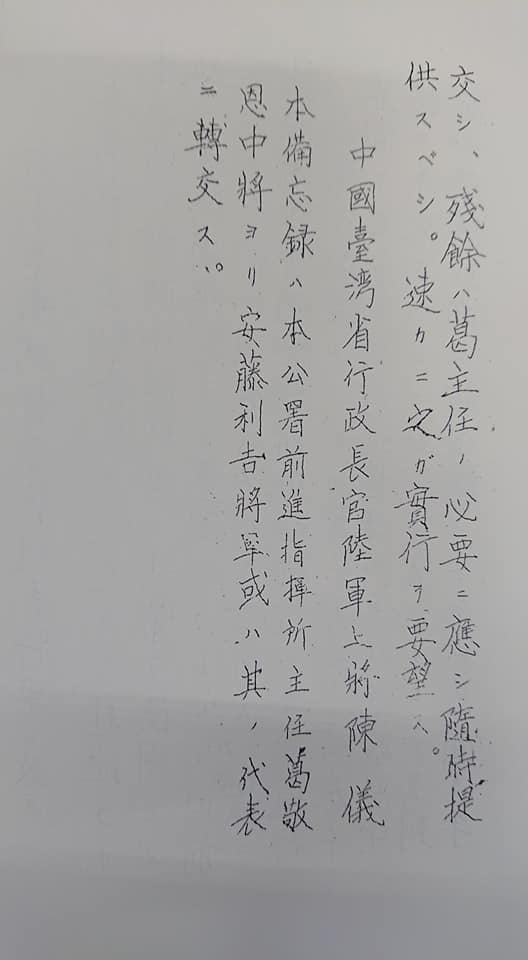 交シ、殘餘ハ葛主任ノ心要ニ應シ隨時提
供スベシ。速カニ之ガ實行ヲ要望ス。
中國臺湾省行政長官陸軍上將陳儀
本備忘録ハ本公署前進指揮所主任葛敬
恩中將ヨリ安藤利吉將軍或ハ其ノ代表
ニ轉交ス。